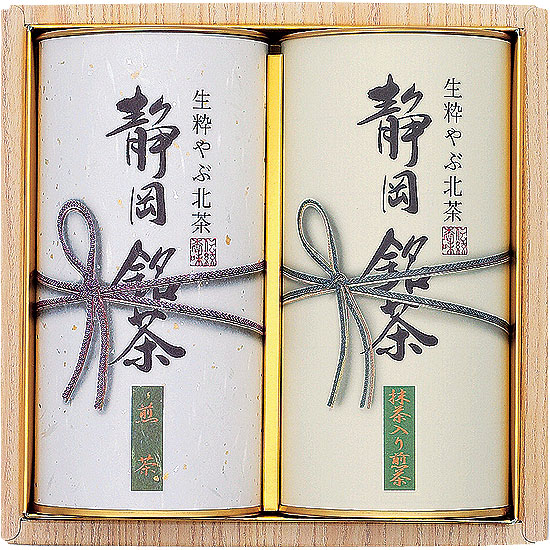 生粋やぶ北茶
静岡銘茶
煎茶
生粋やぶ北茶
静岡銘茶
抹茶入り煎茶